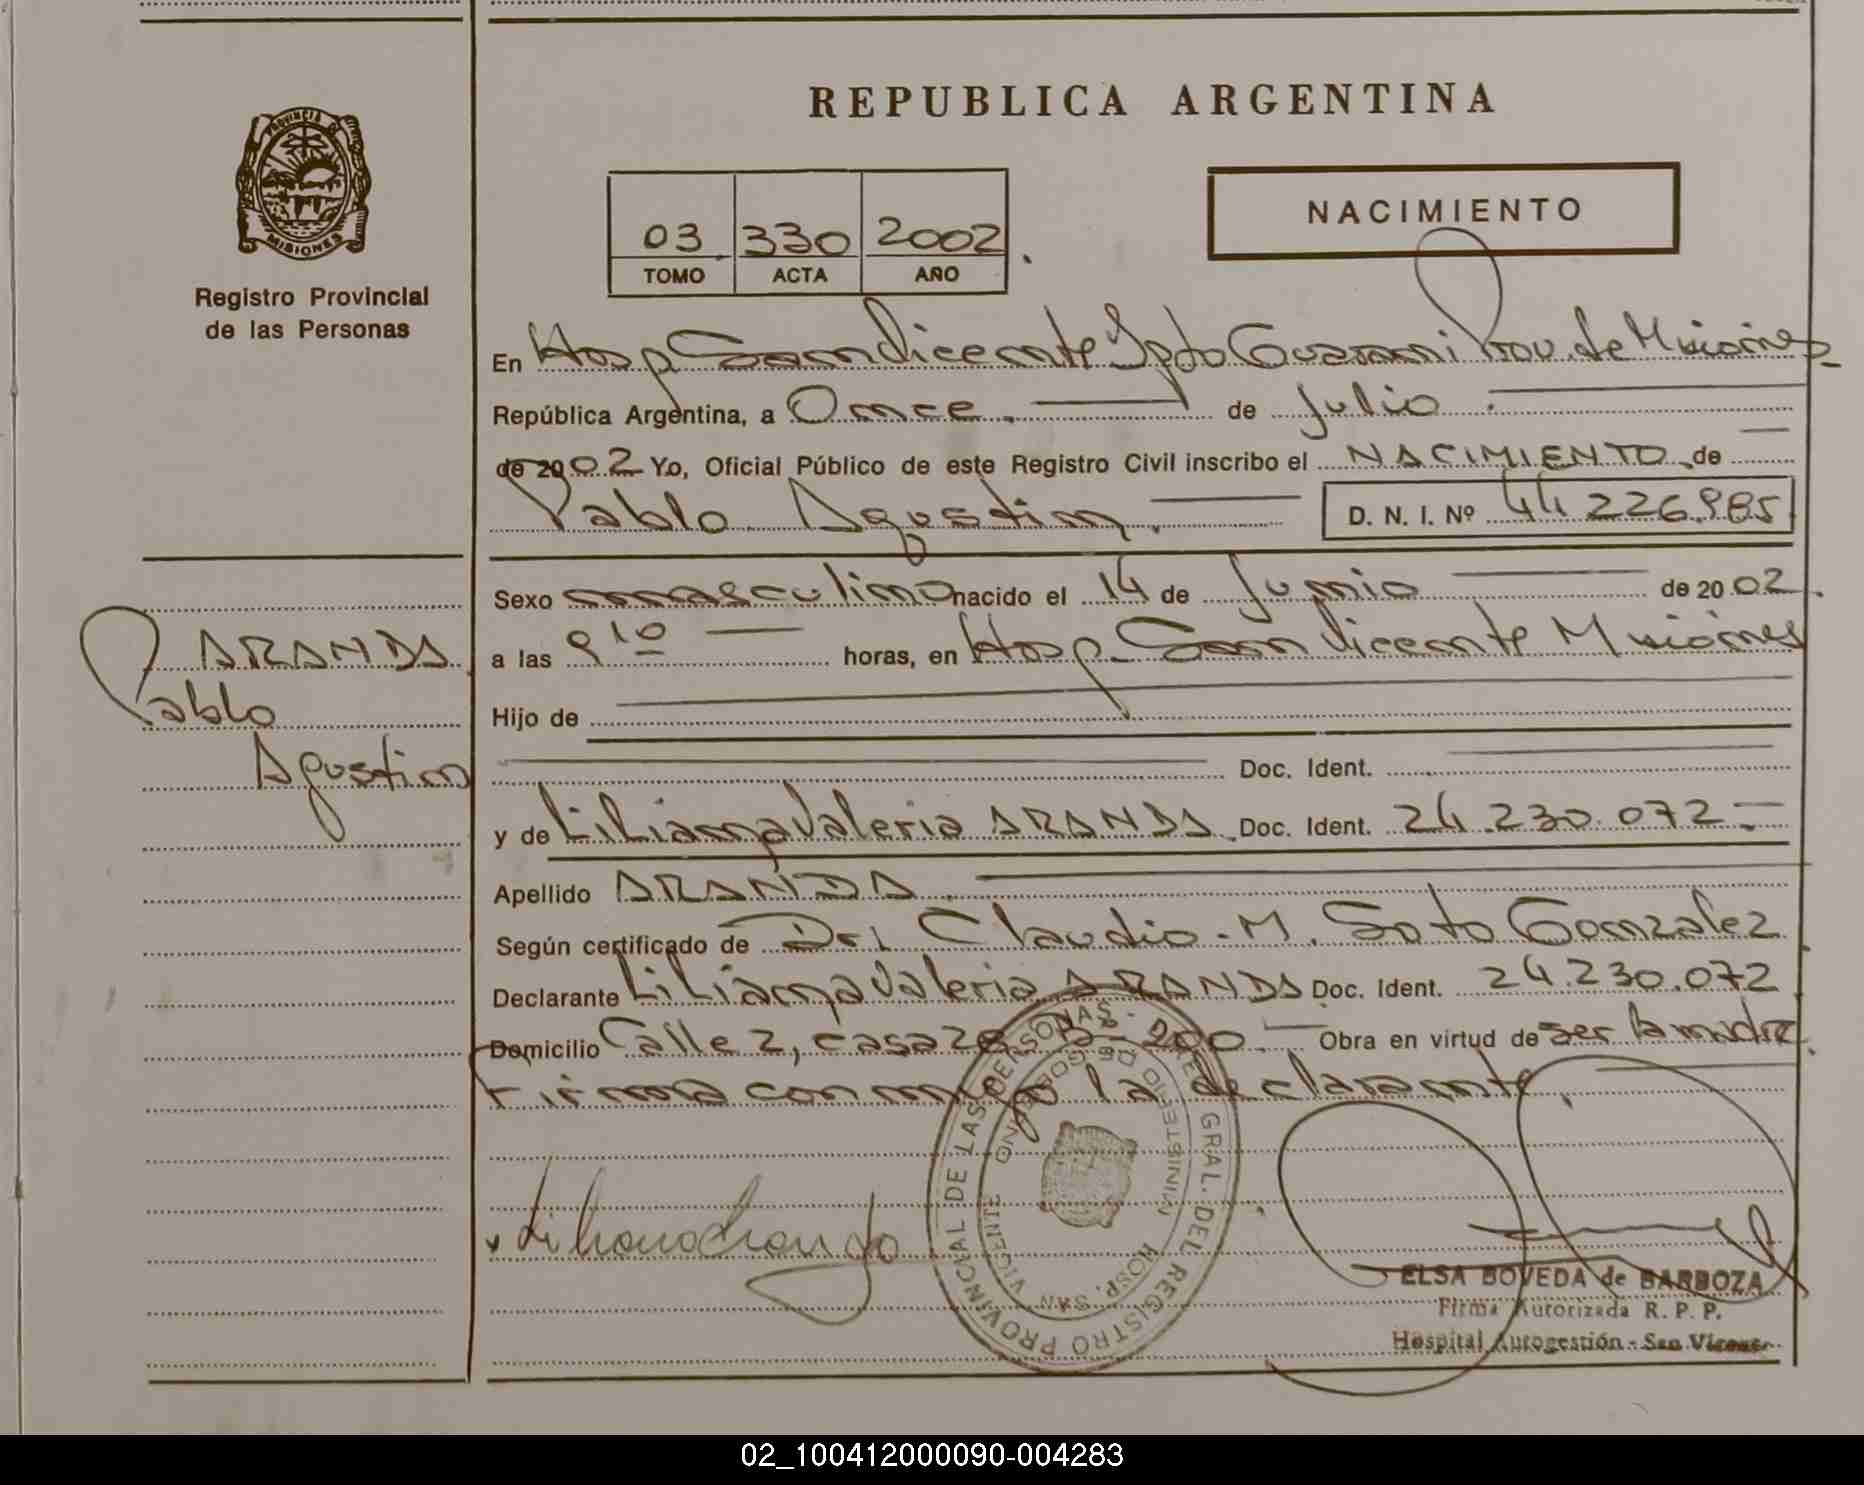 REPUBLICA ARGENTINA
PROVINCIA DE MISIONES
Registro Provincial
de las Personas
03 330 2002
TOMO ACTA AÑO
NACIMIENTO
En Hosp San Vicente Dpto Guarani Prov. de Misiones
República Argentina, a Once. de Julio.
de 2002 Yo, Oficial Público de este Registro Civil inscribo el NACIMIENTO de
Pablo Agustin. D. N. I. Nº 44 226.985
Sexo masculino nacido el 14 de Junio de 20 02.
a las 9 10 horas, en Hosp. San Vicente Misiones
Hijo de
Doc. Ident.
y de Liliana Valeria ARANDA Doc. Ident. 24.230.072
Apellido ARANDA
Según certificado de Dr. Claudio. M. Soto Gonzalez
Declarante Liliana Valeria ARANDA Doc. Ident. 24.230.072
Domicilio Calle 2, casa 26 B- 200. Obra en virtud de ser la madre
Firma conmigo la declarante.
ARANDA
Pablo
Agustin
GRAL. DEL REGISTRO PROVINCIAL DE LAS PERSONAS
MINISTERIO DE GOBIERNO
HOSP. SAN VICENTE
ELSA BOVEDA de BARBOZA
Firma Autorizada R. P. P.
Hospital Autogestión - San Vicente
02_100412000090-004283